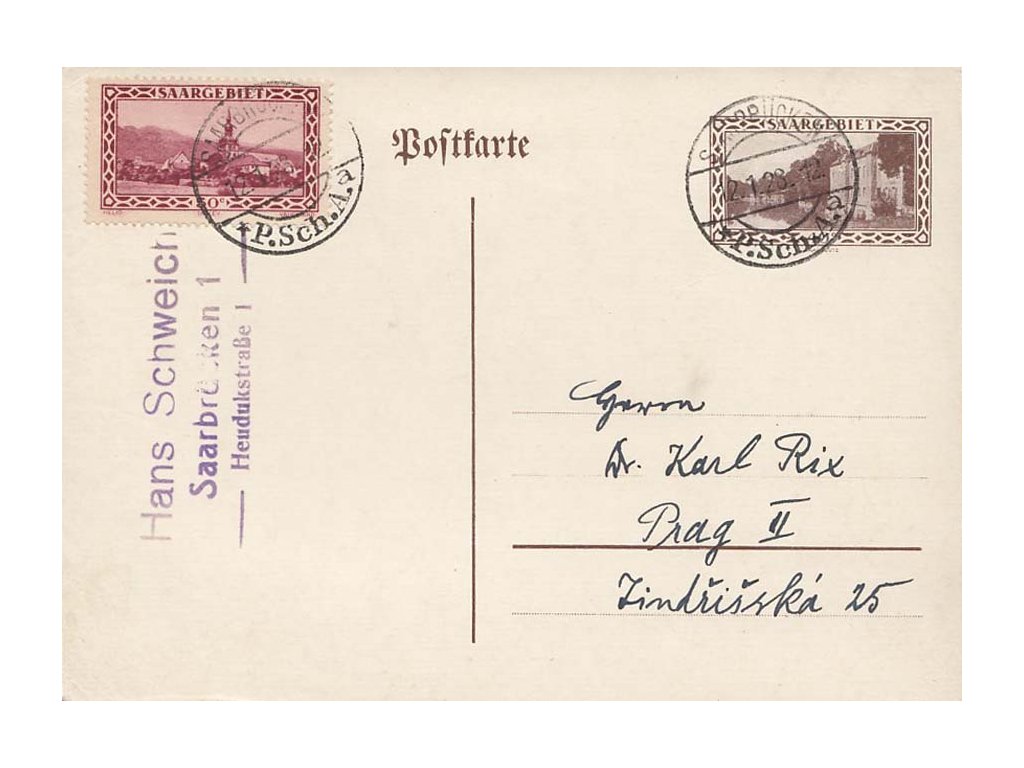 SAARGEBIET
Postkarte
SAARGEBIET
*P.Sch.A.a
SAARBRÜCK
12.1.28. 12
*P.Sch.A.a
Hans Schweich
Saarbrücken 1
Heudukstraße 1
Herrn
Dr. Karl Rix
Prag II
Jindřišská 25